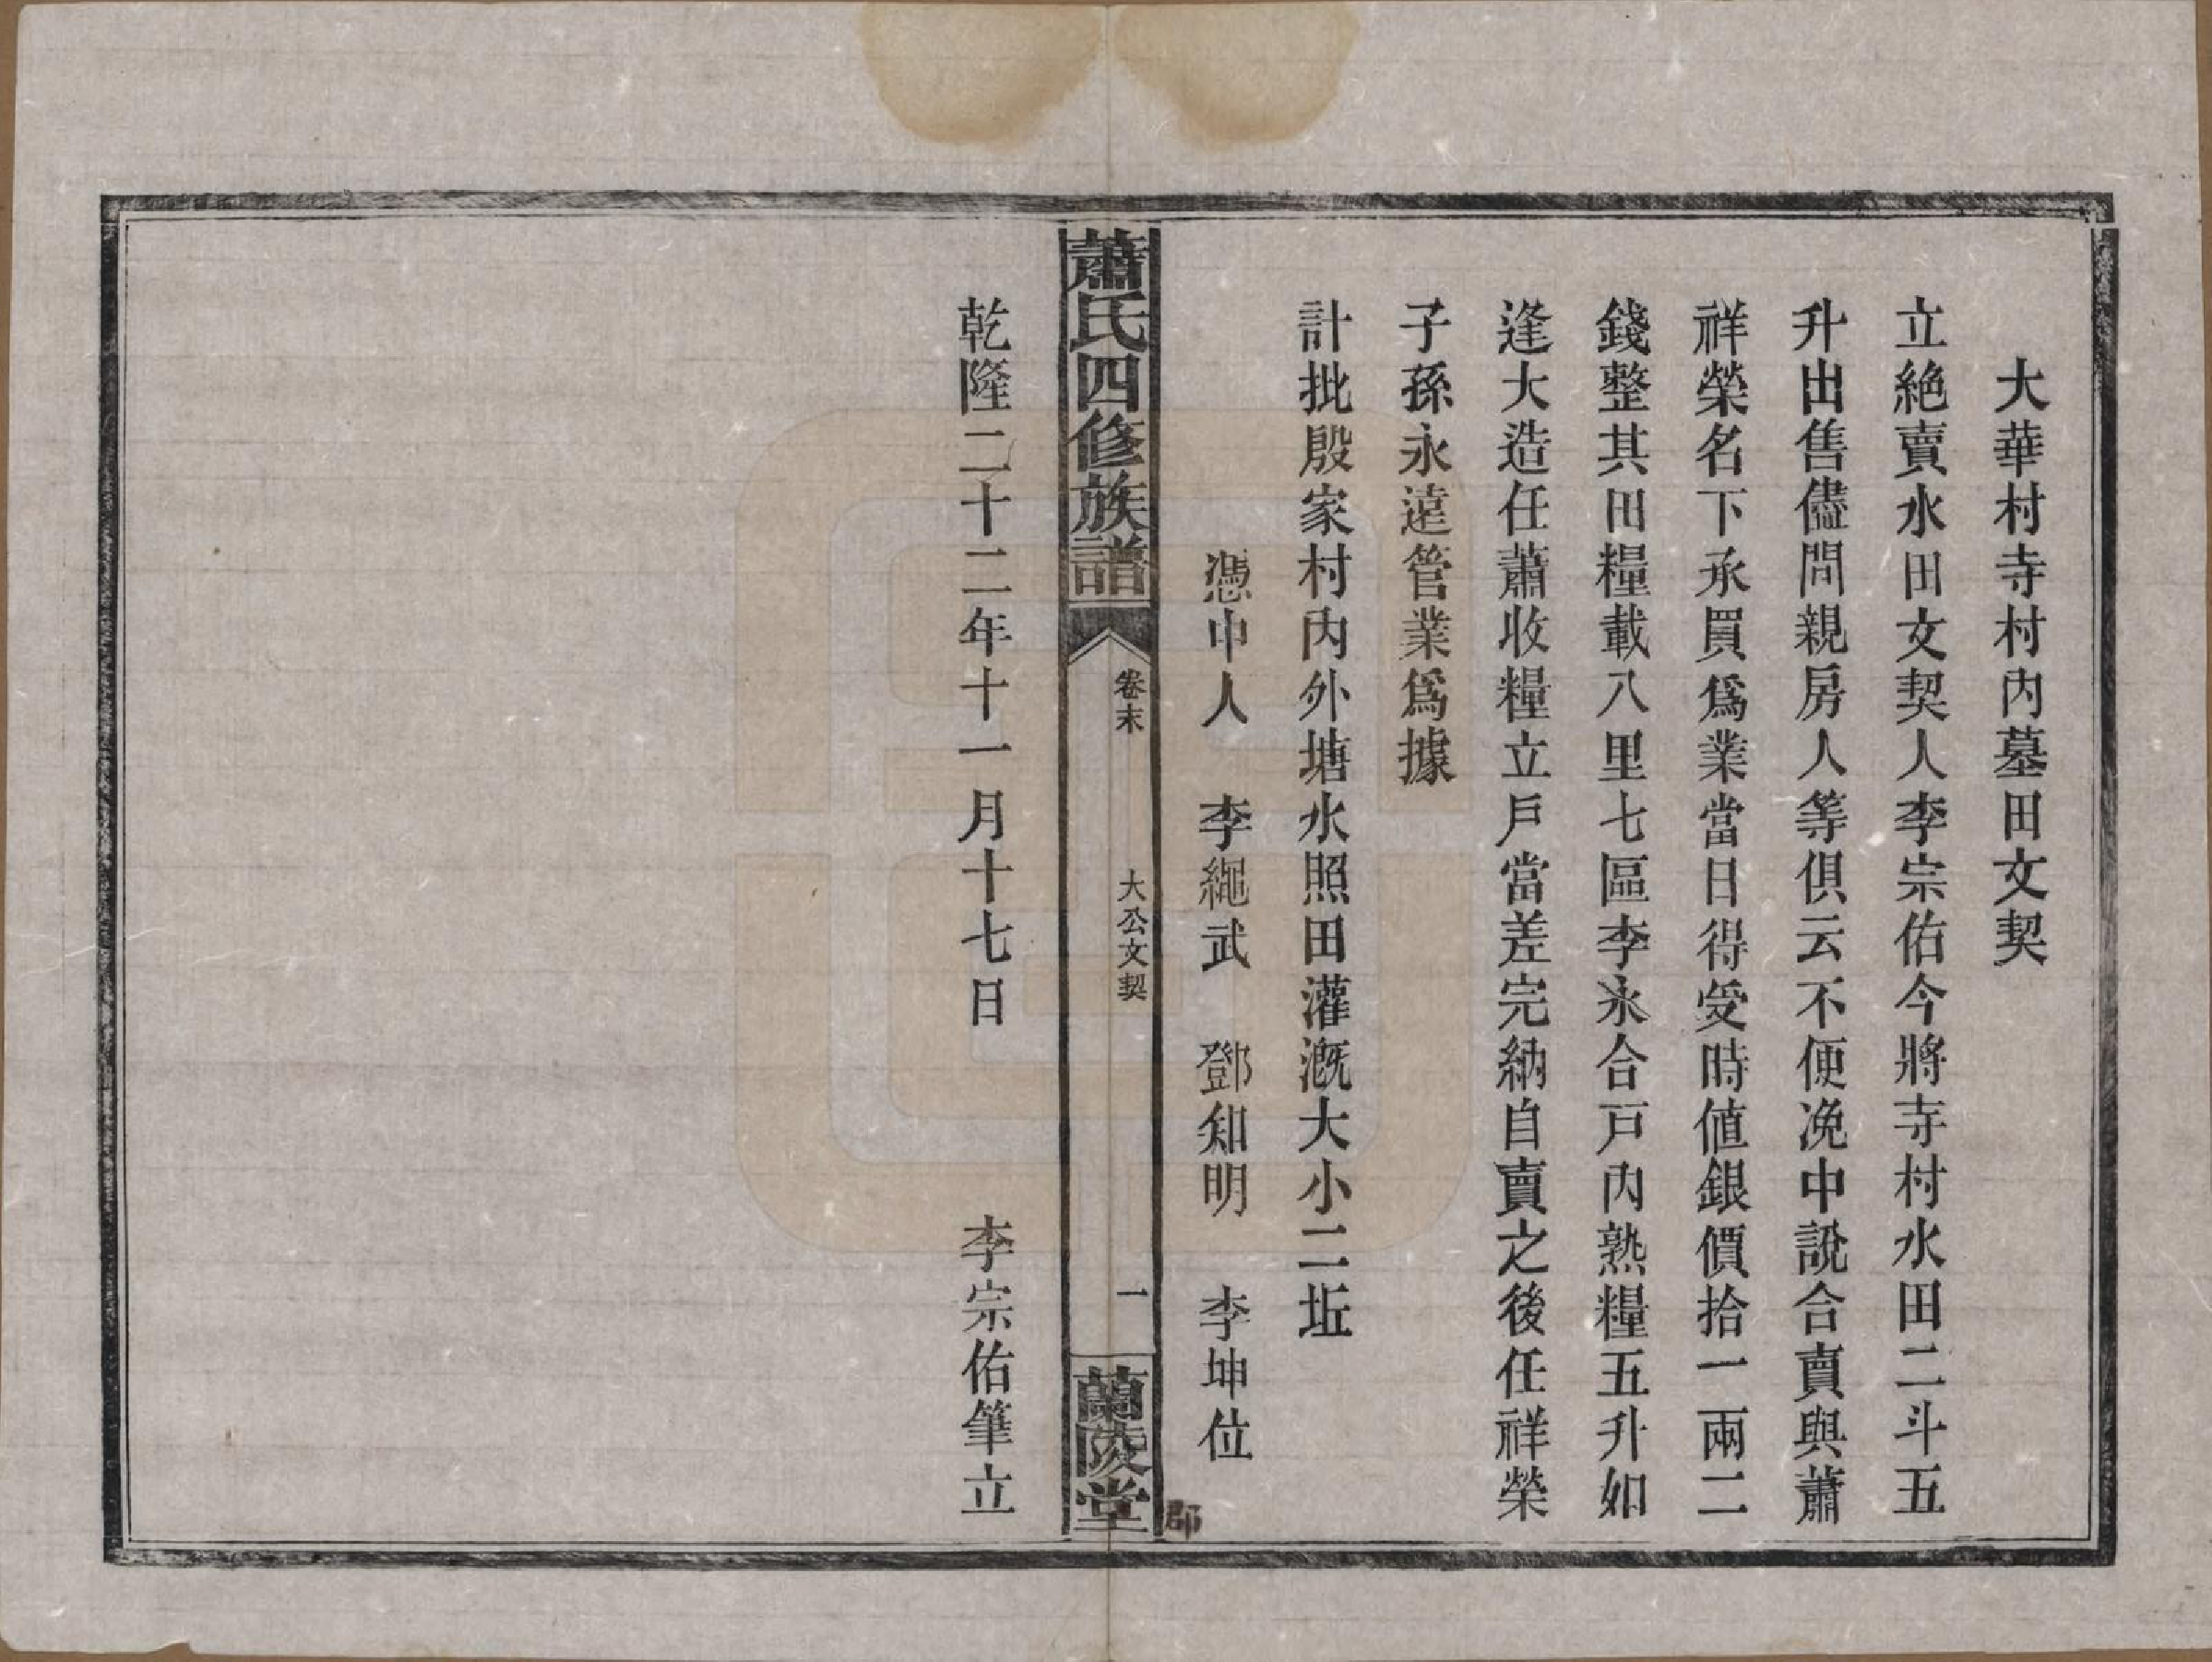 大華村寺村內墓田文契
立絶賣水田文契人李宗佑今將寺村水田二斗五
升出售儘問親房人等俱云不便浼中說合賣與蕭
祥榮名下承買爲業當日得受時値銀價拾一兩二
錢整其田糧載八里七區李永合戸內熟糧五升如
逢大造任蕭收糧立戸當差完納自賣之後任祥榮
子孫永遠管業爲據
計批殷家村內外塘水照田灌溉大小二坵
憑中人　李繩武　鄧知明　李坤位
蕭氏四修族譜　卷末　大公文契　一　蘭陵堂
郡
乾隆二十二年十一月十七日　李宗佑筆立